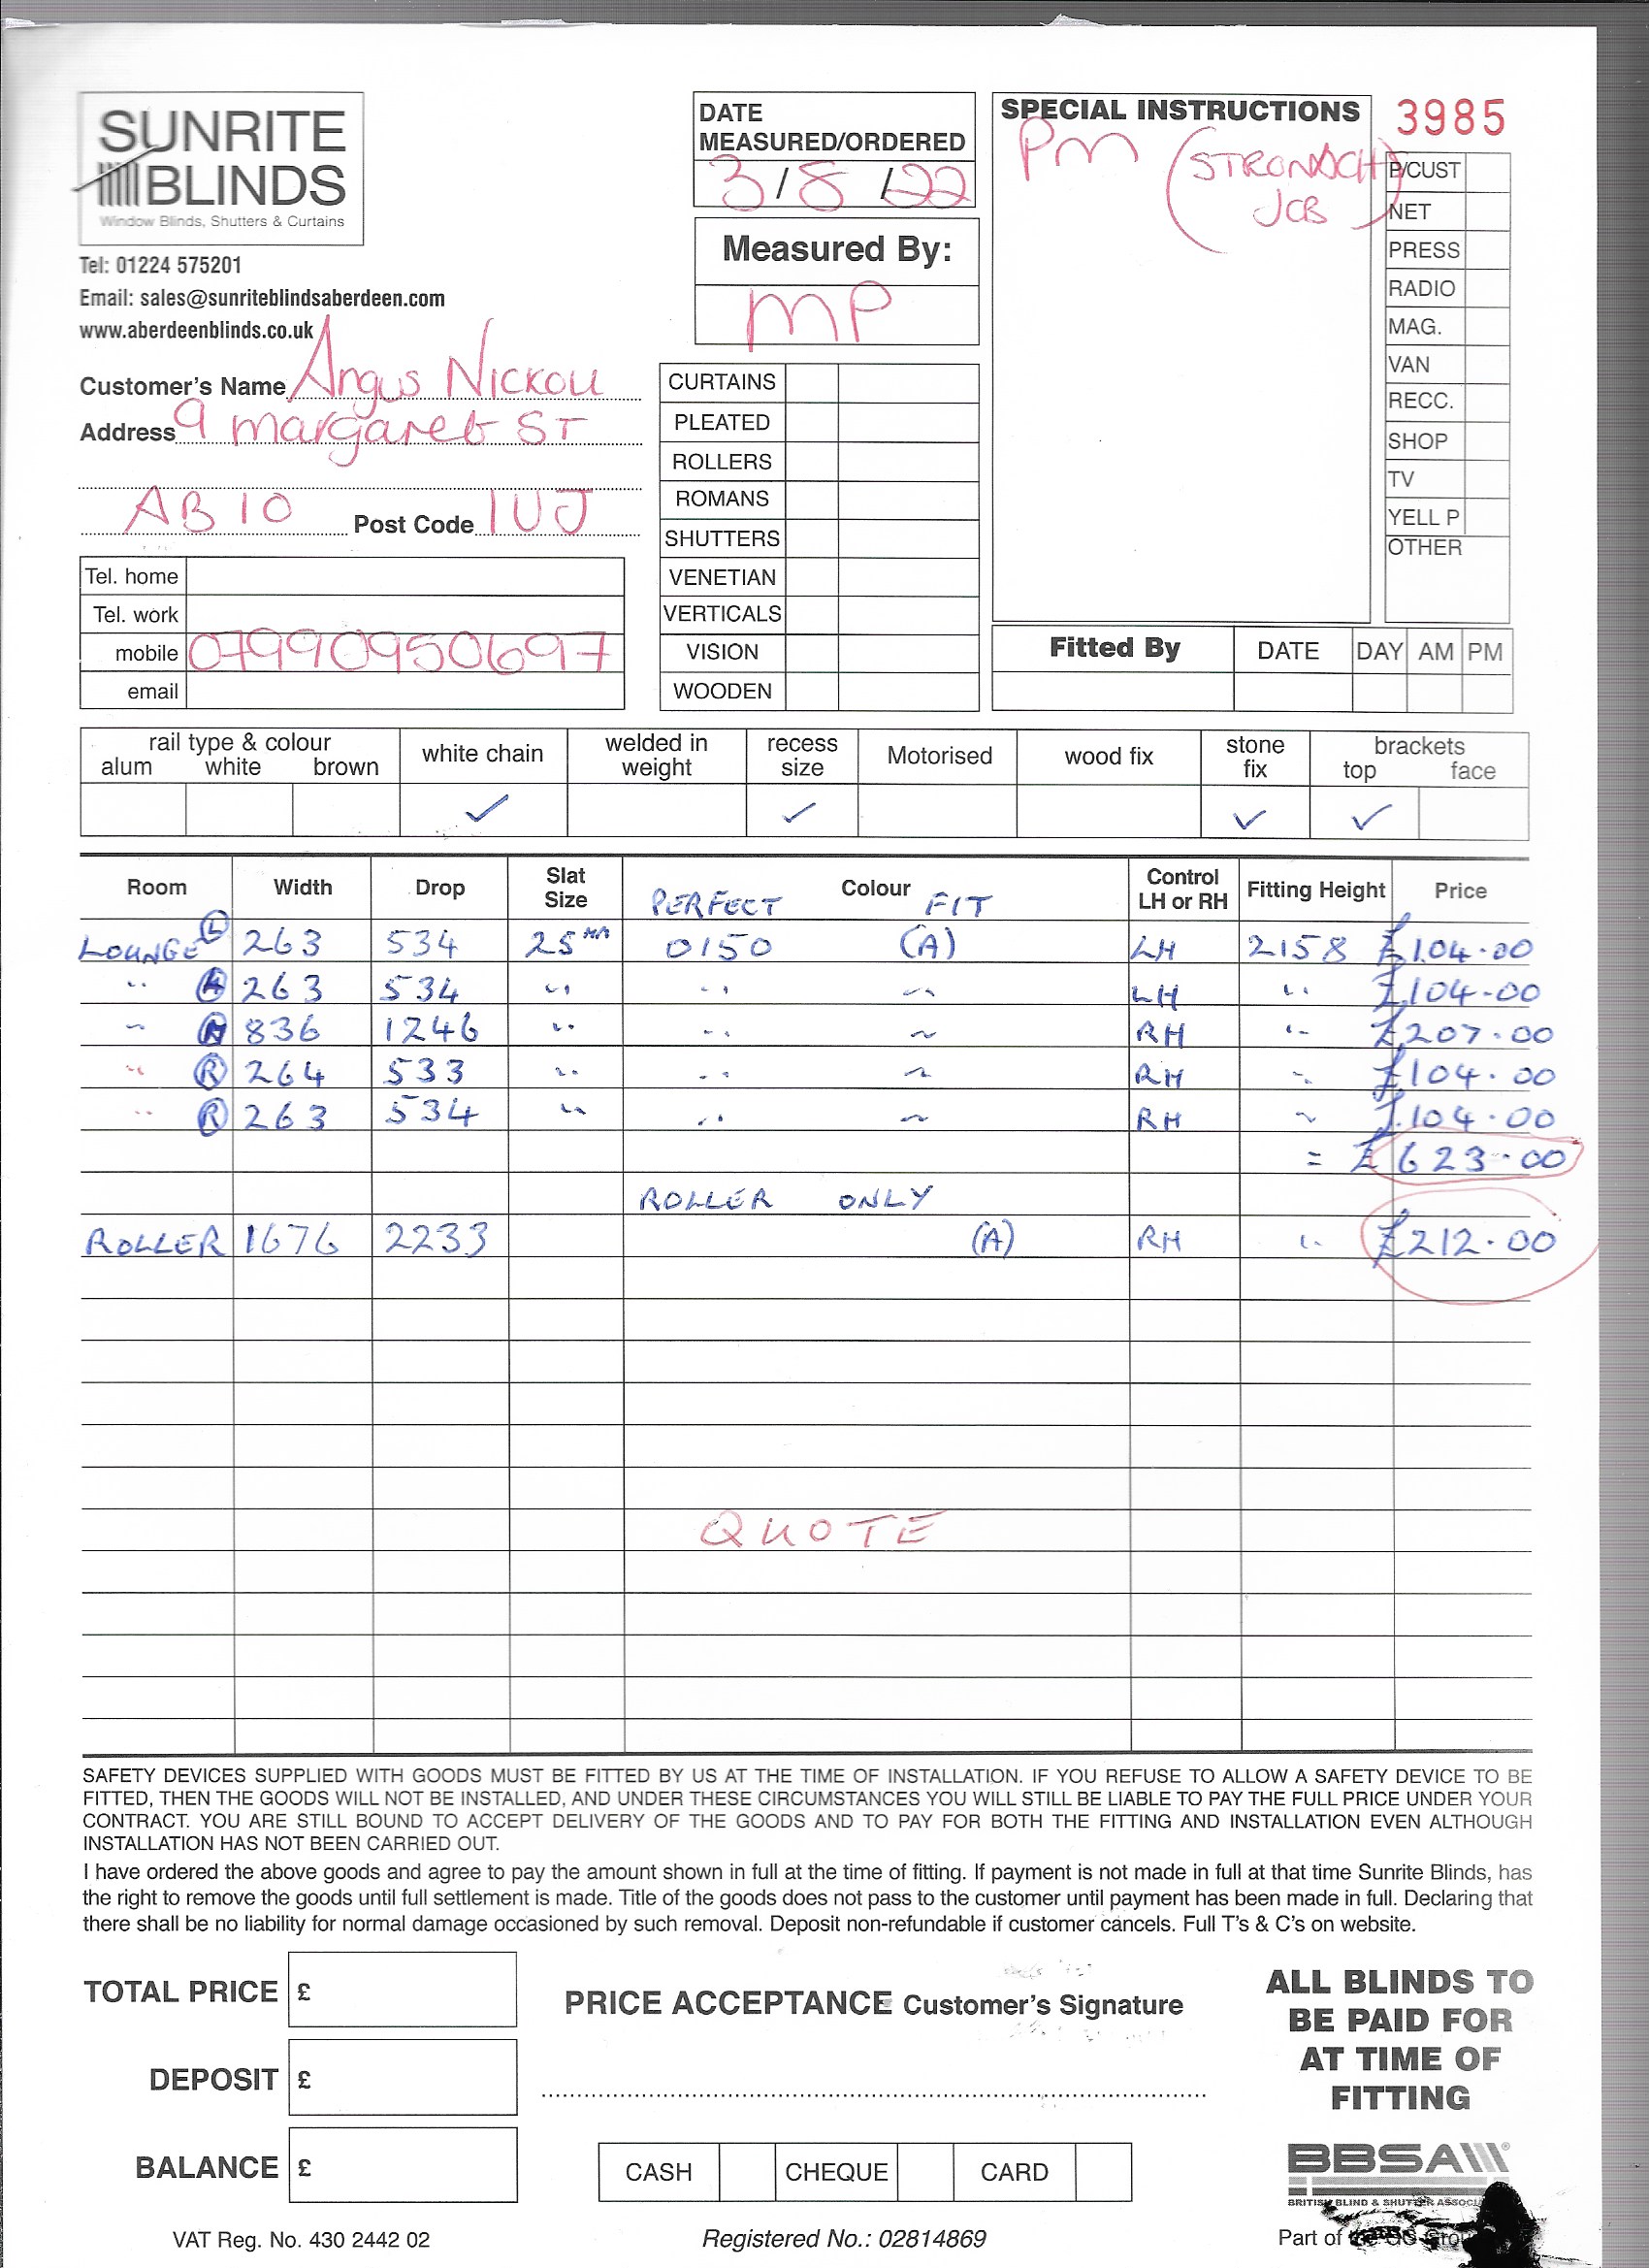 SUNRITE
BLINDS
Window Blinds, Shutters & Curtains
Tel: 01224 575201
Email: sales@sunriteblindsaberdeen.com
www.aberdeenblinds.co.uk
DATE
MEASURED/ORDERED
3/8/22
Measured By:
MP
SPECIAL INSTRUCTIONS
PM (STRONACH
JOB)
3985
P/CUST
NET
PRESS
RADIO
MAG.
VAN
RECC.
SHOP
TV
YELL P
OTHER
Customer's Name Angus Nickoll
Address 9 Margaret ST
AB10 Post Code 1UJ
Tel. home
Tel. work
mobile 07990950697
email
CURTAINS
PLEATED
ROLLERS
ROMANS
SHUTTERS
VENETIAN
VERTICALS
VISION
WOODEN
Fitted By DATE DAY AM PM
rail type & colour
alum white brown
white chain ✓
welded in
weight
recess
size ✓
Motorised
wood fix
stone
fix ✓
brackets
top face
✓
Room Width Drop Slat Size Colour Control LH or RH Fitting Height Price
PERFECT FIT
LOUNGE L 263 534 25mm 0150 (A) LH 2158 £104.00
" 263 534 " " " LH " £104.00
" 836 1246 " " " RH " £207.00
" R 264 533 " " " RH " £104.00
" R 263 534 " " " RH " £104.00
= £623.00
ROLLER ONLY
ROLLER 1676 2233 (A) RH " £212.00
QUOTE
SAFETY DEVICES SUPPLIED WITH GOODS MUST BE FITTED BY US AT THE TIME OF INSTALLATION. IF YOU REFUSE TO ALLOW A SAFETY DEVICE TO BE
FITTED, THEN THE GOODS WILL NOT BE INSTALLED, AND UNDER THESE CIRCUMSTANCES YOU WILL STILL BE LIABLE TO PAY THE FULL PRICE UNDER YOUR
CONTRACT. YOU ARE STILL BOUND TO ACCEPT DELIVERY OF THE GOODS AND TO PAY FOR BOTH THE FITTING AND INSTALLATION EVEN ALTHOUGH
INSTALLATION HAS NOT BEEN CARRIED OUT.
I have ordered the above goods and agree to pay the amount shown in full at the time of fitting. If payment is not made in full at that time Sunrite Blinds, has
the right to remove the goods until full settlement is made. Title of the goods does not pass to the customer until payment has been made in full. Declaring that
there shall be no liability for normal damage occasioned by such removal. Deposit non-refundable if customer cancels. Full T's & C's on website.
TOTAL PRICE £
DEPOSIT £
BALANCE £
PRICE ACCEPTANCE Customer's Signature
CASH CHEQUE CARD
ALL BLINDS TO
BE PAID FOR
AT TIME OF
FITTING
BBSA
BRITISH BLIND & SHUTTER
VAT Reg. No. 430 2442 02
Registered No.: 02814869
Part of